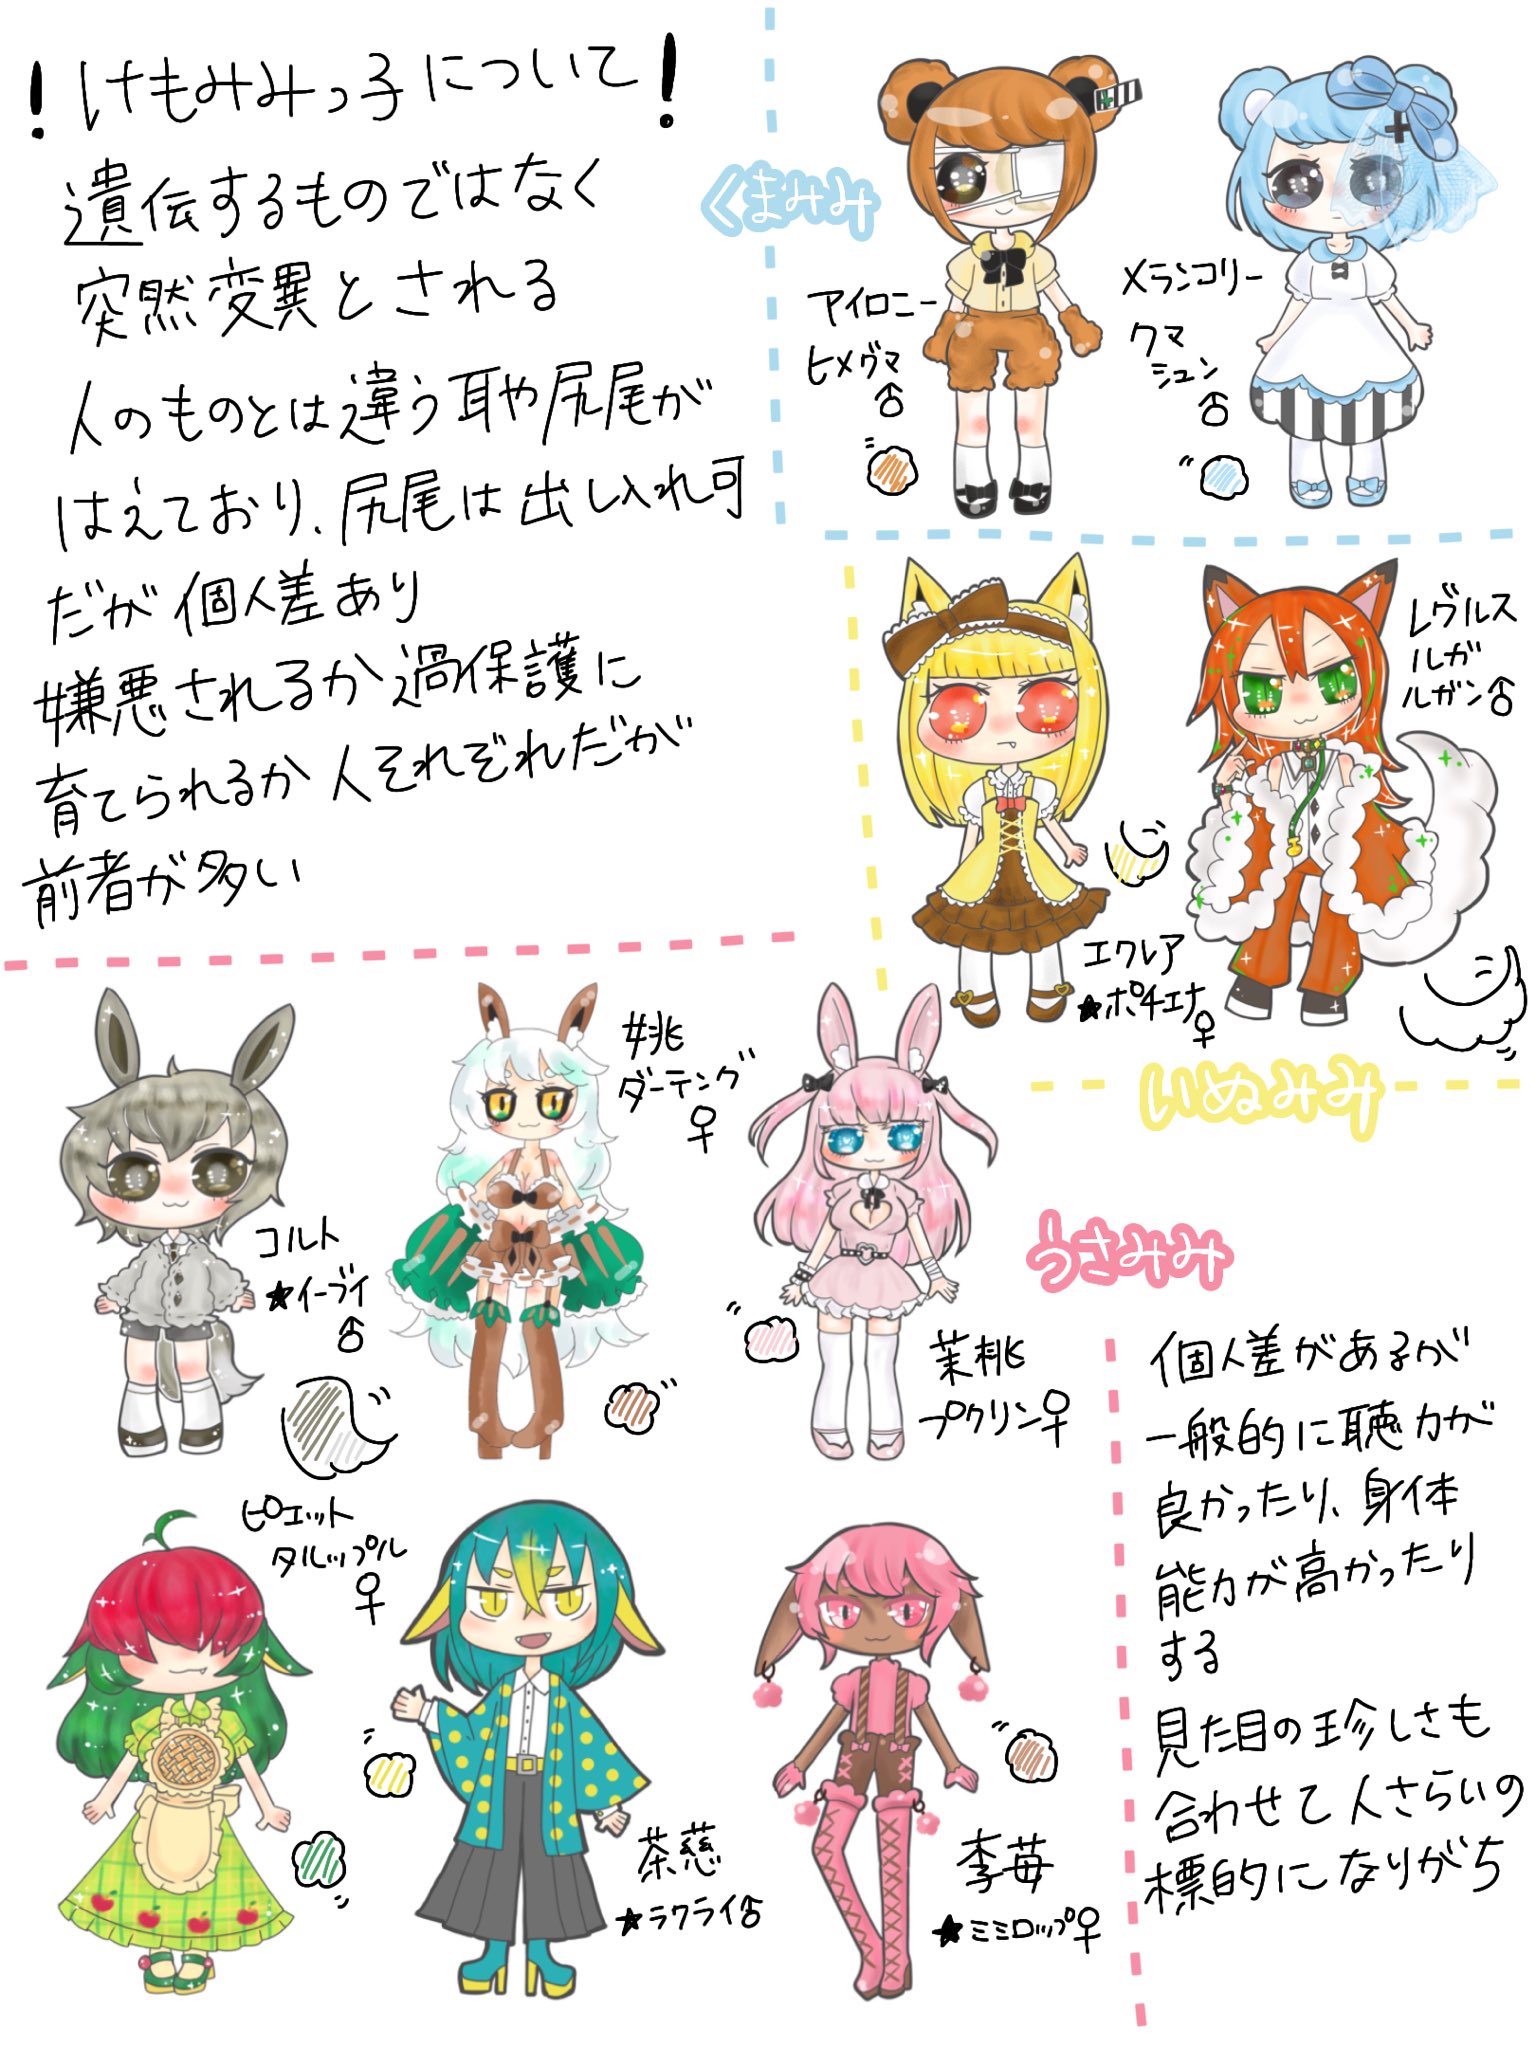 ！けもみみっ子について！
遺伝するものではなく
突然変異とされる
人のものとは違う耳や尻尾が
はえており、尻尾は出し入れ可
だが個人差あり
嫌悪されるか過保護に
育てられるか人それぞれだが
前者が多い
くまみみ
アイロニー
ヒメグマ
♂
メランコリー
クマ
シュン
♂
エクレア
★ポチエナ
♀
レグルス
ルガ
ルガン♂
いぬみみ
コルト
★イーブイ
♂
姚
ダーテング
♀
茉桃
プクリン♀
うさみみ
ピエット
タルップル
♀
茶慈
★ラクライ♂
李苺
★ミミロップ♀
個人差があるが
一般的に聴力が
良かったり、身体
能力が高かったり
する
見た目の珍しさも
合わせて人さらいの
標的になりがち